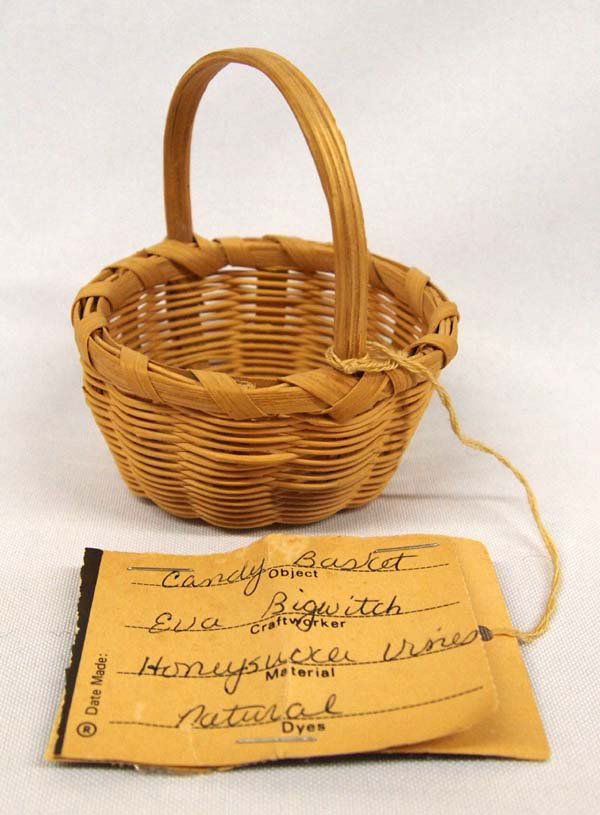 Candy Basket
Object
Eva Bigwitch
Craftworker
Honeysuckle Vines
Material
Natural
Dyes
® Date Made: